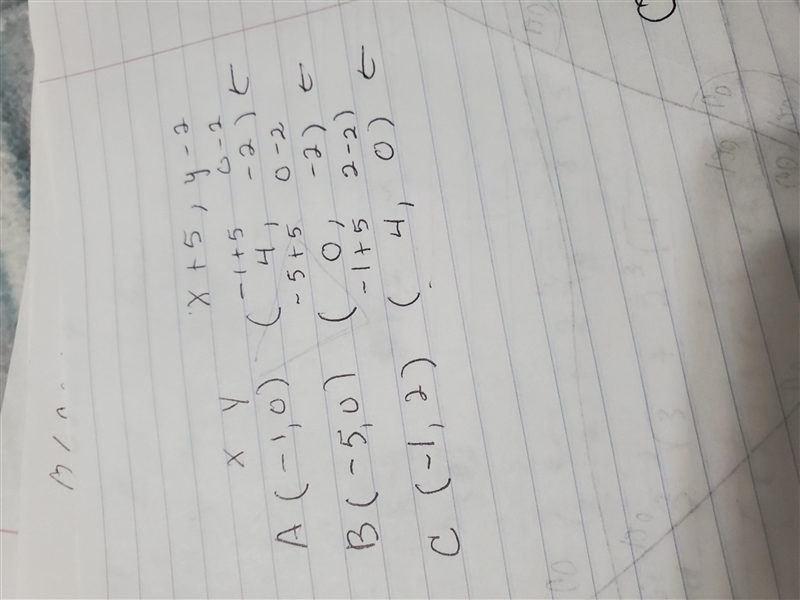 x + 5 , y - 2
x y -1+5 0-2
A (-1,0) ( 4, -2) ←
-5+5 0-2
B (-5,0) ( 0, -2) ←
-1+5 2-2)
C (-1, 2) ( 4, 0) ←